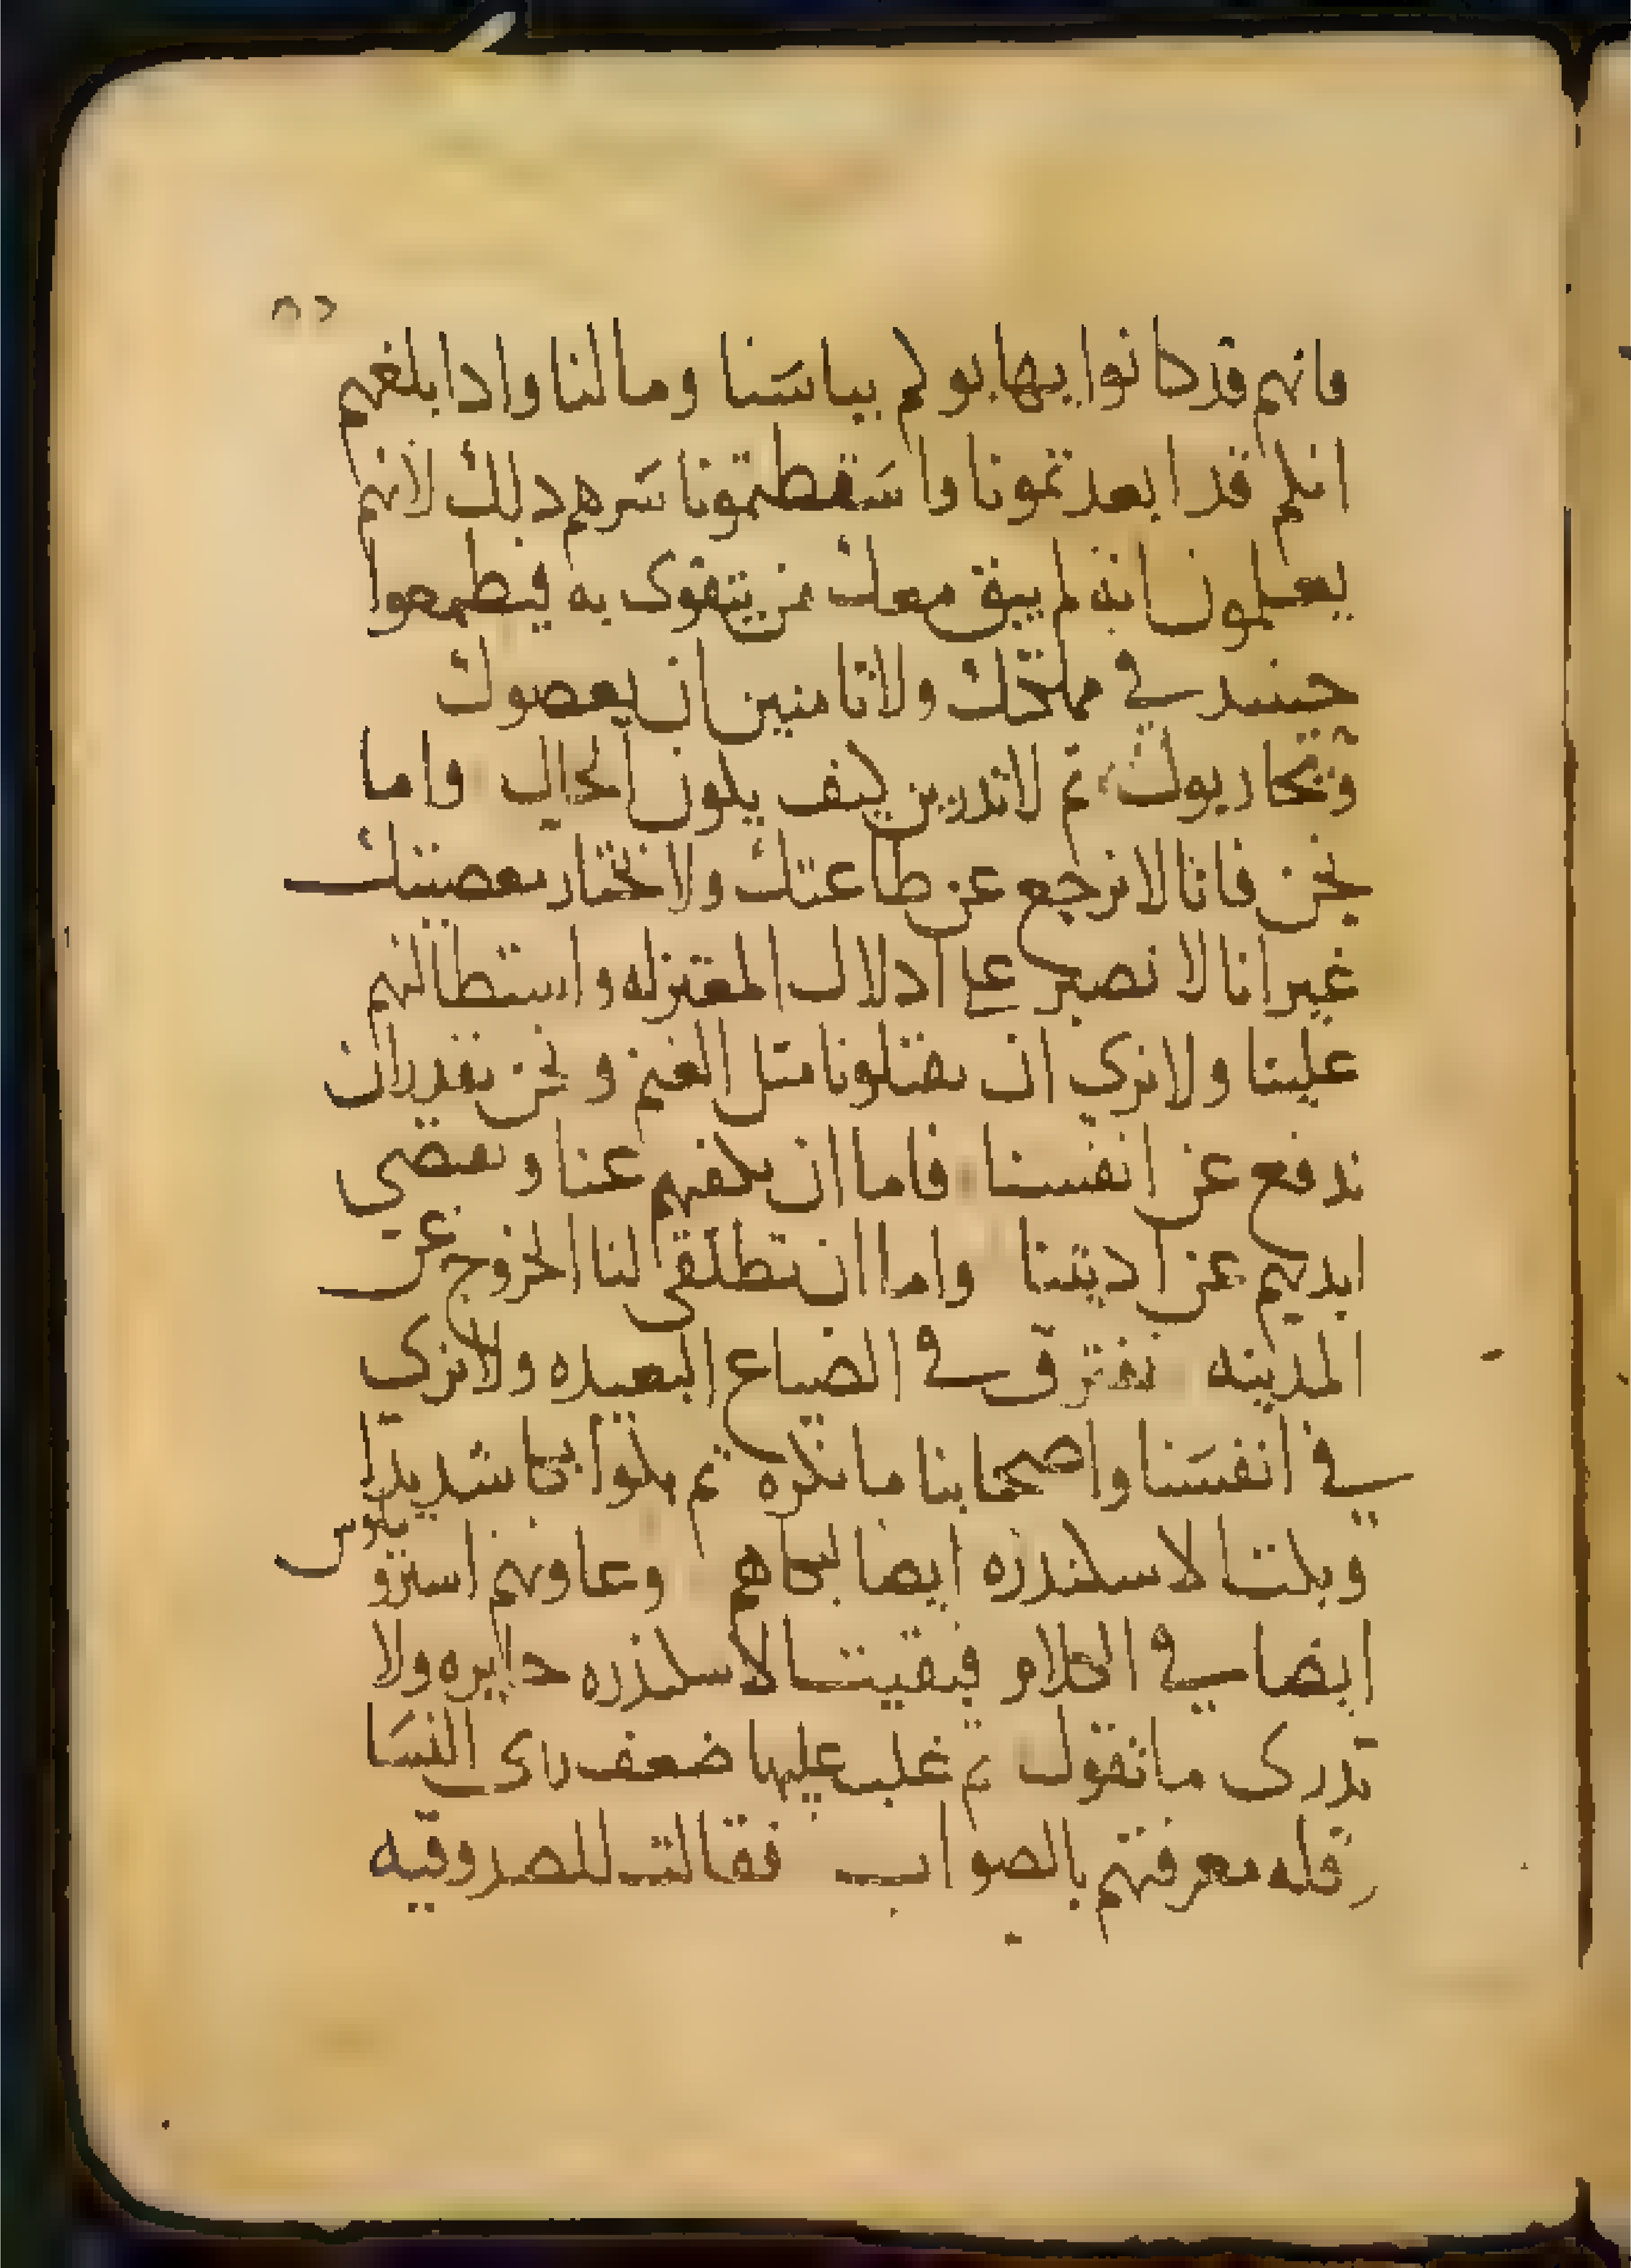 فانهم قد كانوا يهابوكم بباسنا ومالنا وادا بلغهم
انكم قد ابعدتمونا واسقطتمونا سرهم دلك لانهم
يعلمون انه لم يبق معك من يتقوى به فيطمعوا
حينيد في مملكتك ولا تامنين ان يعصوك
وتحاربوك تم لا تدرين كيف يكون الحال واما
نحن فانا لا نرجع عن طاعتك ولا نختار معصيتك
غير انا لا نصبر على ادلال المعتزله واستطالتهم
علينا ولا نرى ان يقتلونا متل الغنم ونحن نقدر ان
ندفع عن انفسنا فاما ان تكفيهم عنا وتقصي
ايديهم عن اديتنا واما ان تطلقي لنا الخروج عن
المدينه نفترق في الضياع البعيده ولا نرى
في انفسنا واصحابنا ما نكره تم بكوا بكا شديدا
وبكت الاسكندره ايضا لبكاهم وعاونهم استروبيلوس
ايضا في الكلام فبقيت الاسكندره حايره ولا
تدرى ما تقول تم غلب عليها ضعف راى النسا
وقله معرفتهم بالصواب فقالت للصدوقيه